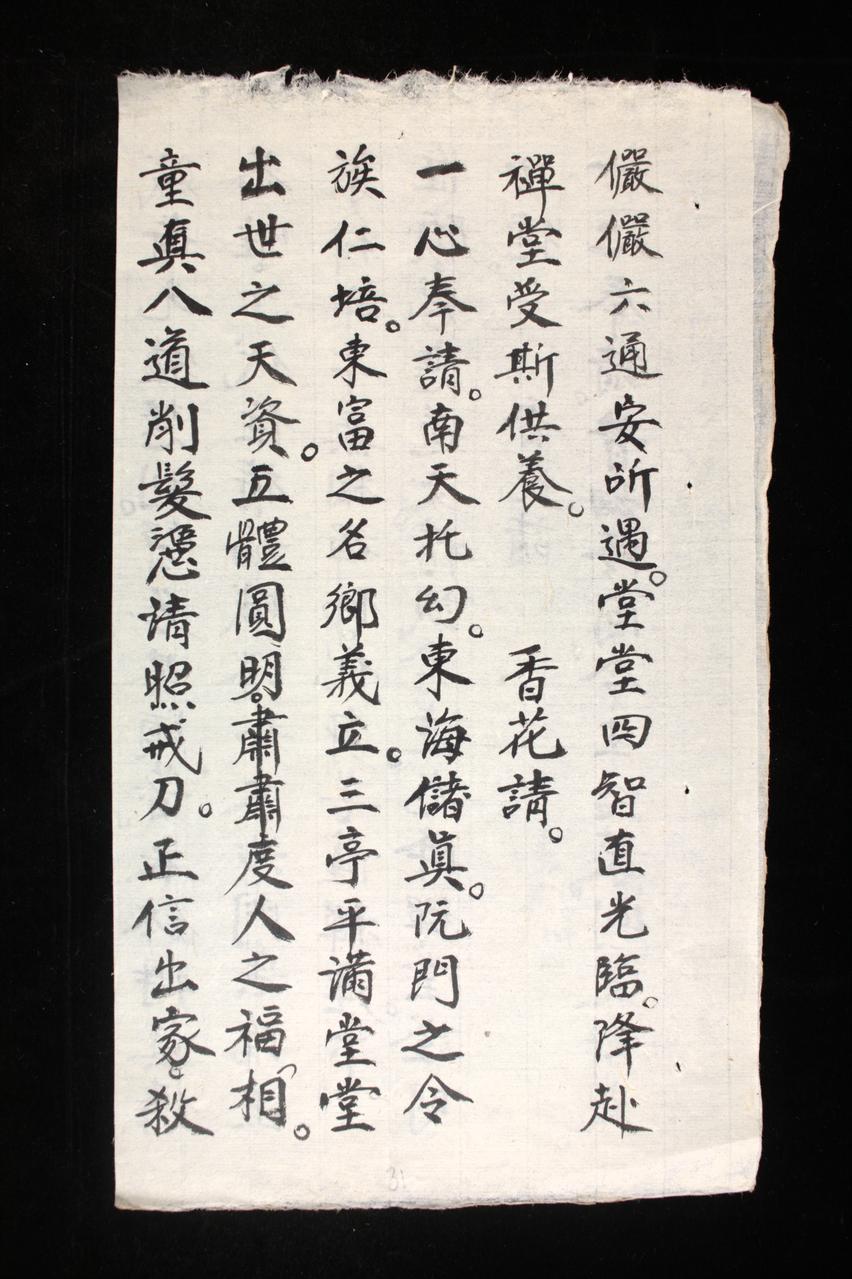 儼儼六通安所遇。堂堂四智直光臨。降赴
禪堂受斯供養。 香花請。
一心奉請。南天托幻。東海儲眞。阮門之令
族仁培。東富之名鄉義立。三亭平滿堂堂
出世之天資。五體圓明。肅肅度人之福相。
童真八道削髮請照戒刀。正信出家。殺
31